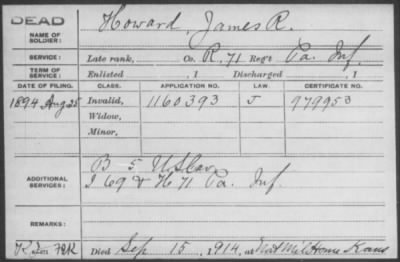 DEAD
NAME OF SOLDIER: Howard, James R.
SERVICE: Late rank, Co. R, 71 Reg't Pa. Inf.
TERM OF SERVICE: Enlisted , 1 Discharged , 1
DATE OF FILING. CLASS. APPLICATION NO. LAW. CERTIFICATE NO.
1894 Aug 25 Invalid, 1160393 J 979953
Widow,
Minor,
B 5 U.S. Cav
ADDITIONAL SERVICES: I 69 & H 71 Pa. Inf.
REMARKS:
Died Sep 15, 1914, at Nat Mil Home Kans